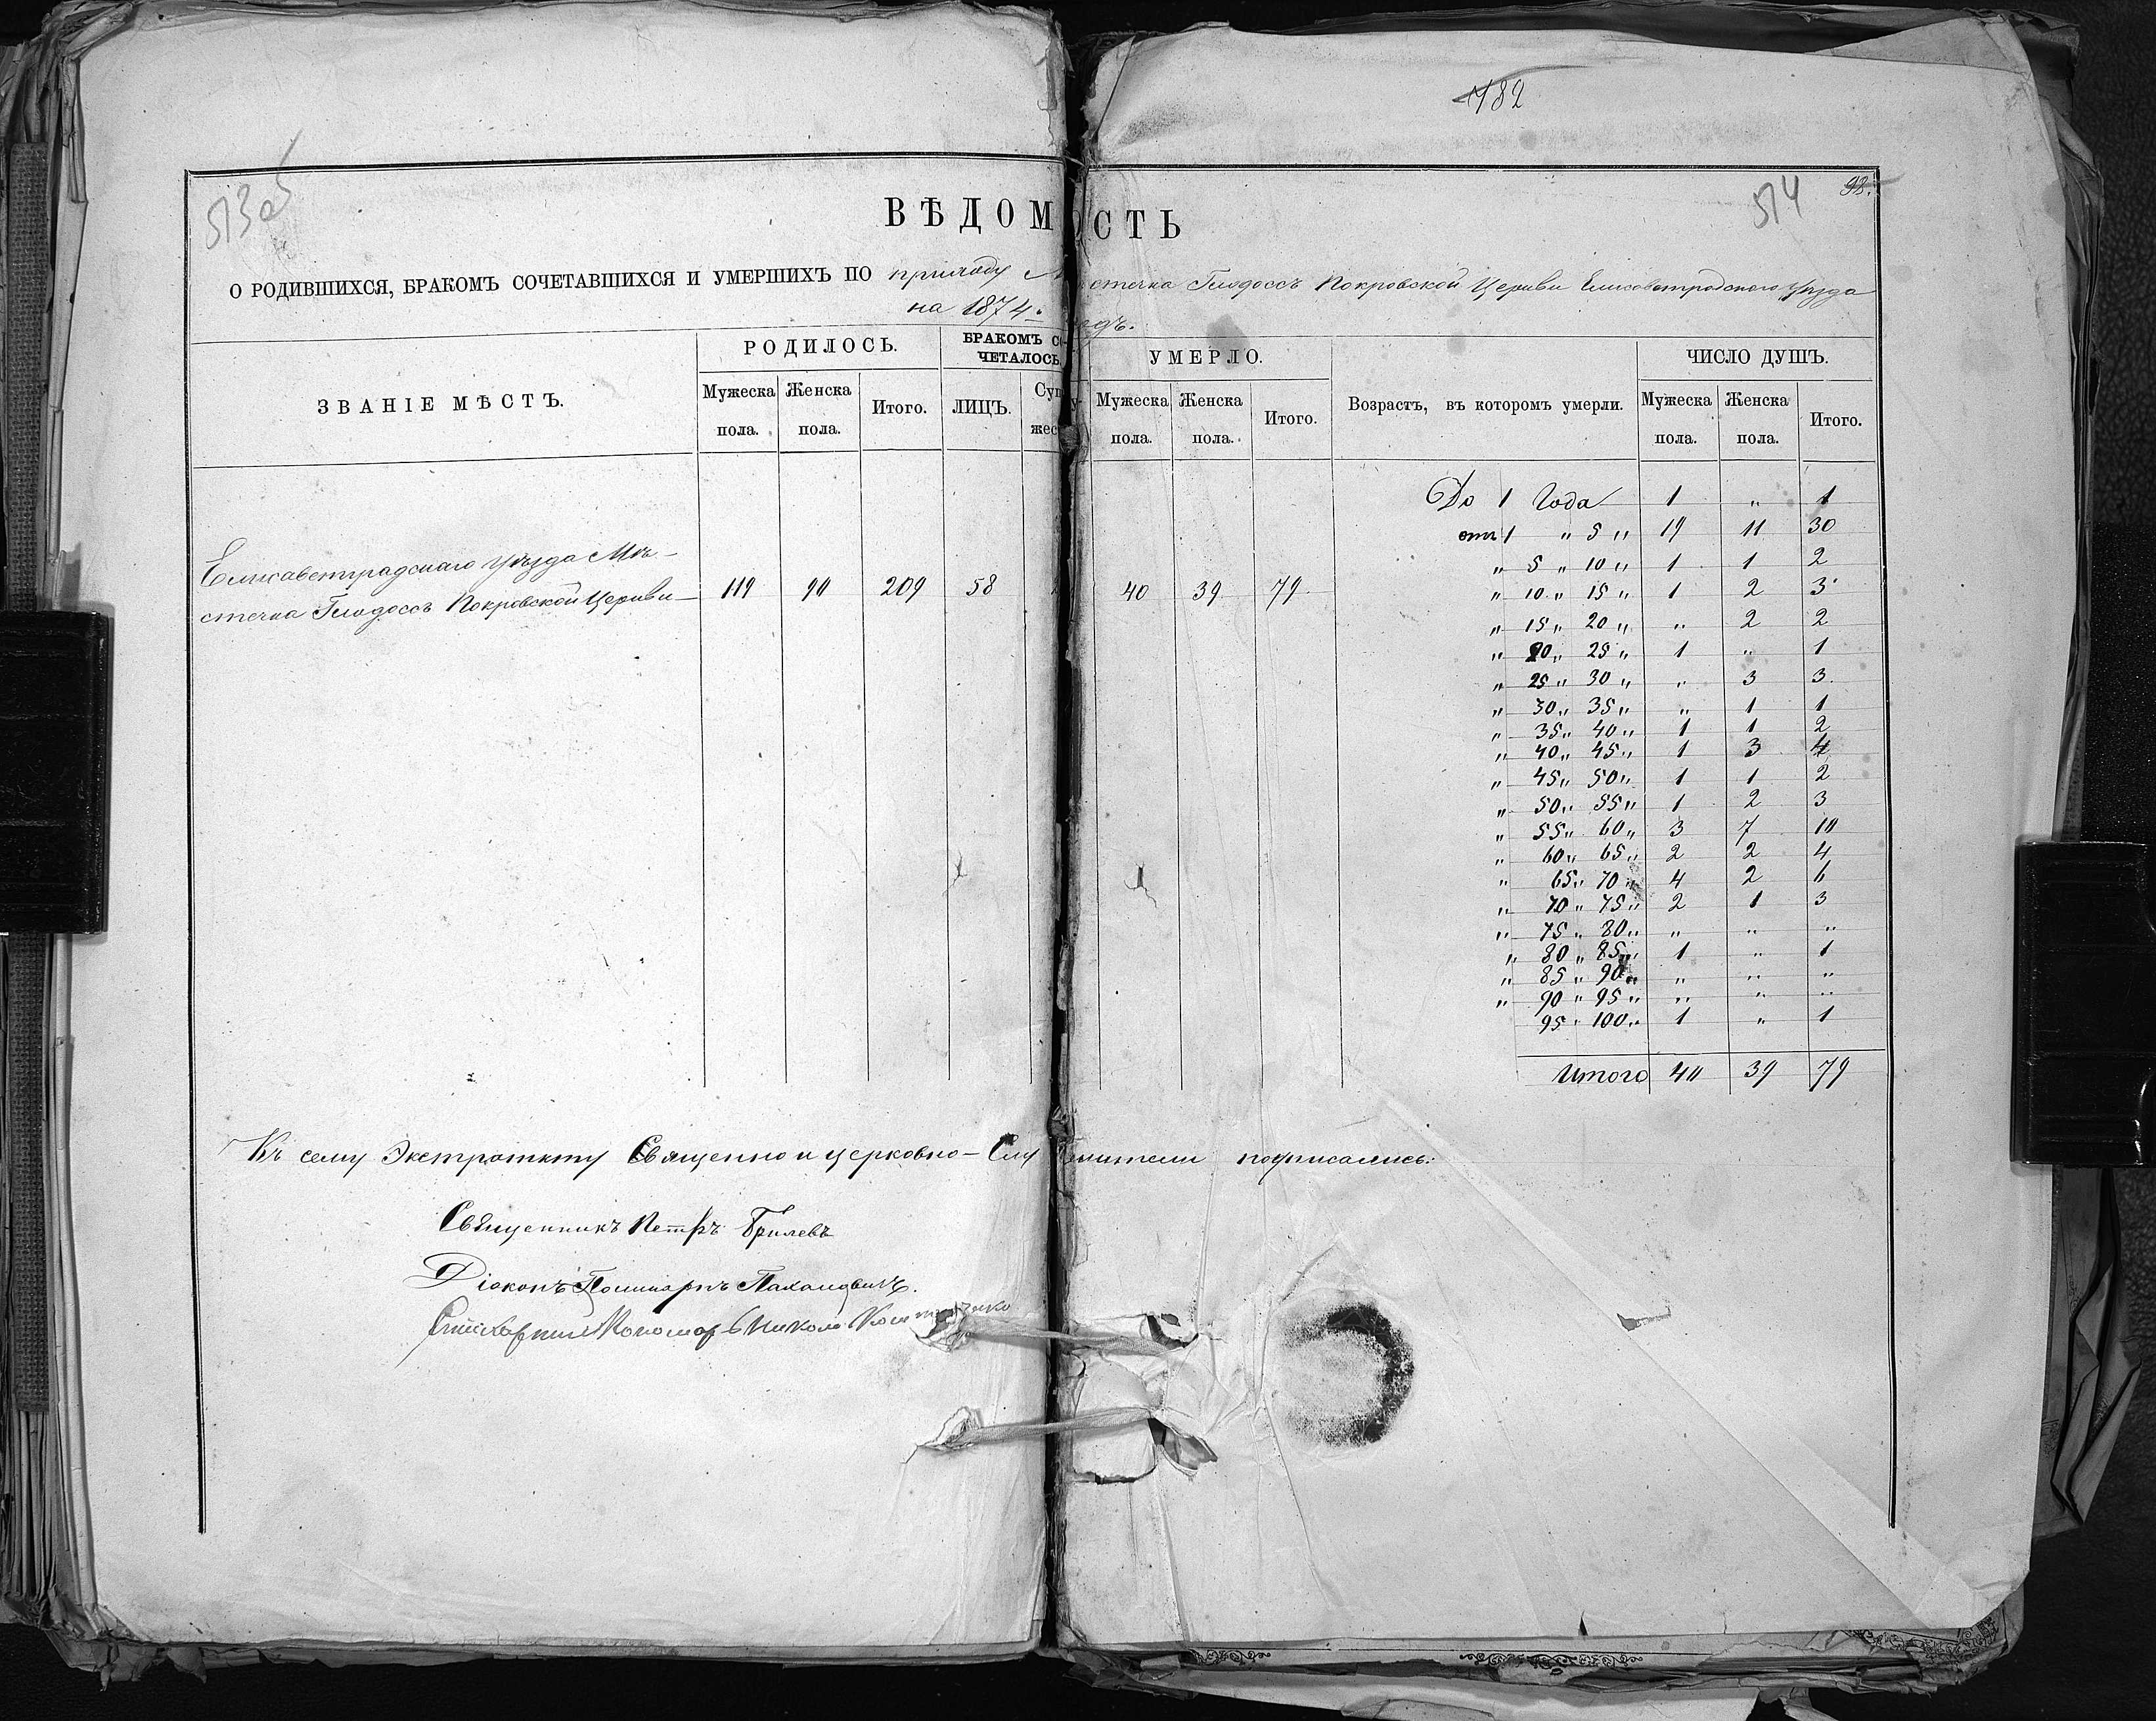 182
513об
514
98.
ВѢДОМОСТЬ
О РОДИВШИХСЯ, БРАКОМЪ СОЧЕТАВШИХСЯ И УМЕРШИХЪ ПО приходу Мѣстечка Глодоссъ Покровской Церкви Елисаветградского уѣзда
на 1874. годъ.
ЗВАНІЕ МѢСТЪ. РОДИЛОСЬ. БРАКОМЪ СОЧЕТАЛОСЬ. УМЕРЛО. Возрастъ, въ которомъ умерли. ЧИСЛО ДУШЪ.
Мужеска пола. Женска пола. Итого. ЛИЦЪ. Супружес Мужеска пола. Женска пола. Итого. Мужеска пола. Женска пола. Итого.
До 1 Года 1 " 1
отъ 1 " 5 " 19 11 30
" 5 " 10 " 1 1 2
Елисаветградскаго уѣзда Мѣ-
стечка Глодоссъ Покровской Церкви 119 90 209 58 40 39 79
" 10 " 15 " 1 2 3
" 15 " 20 " " 2 2
" 20 " 25 " 1 " 1
" 25 " 30 " " 3 3
" 30 " 35 " " 1 1
" 35 " 40 " 1 1 2
" 40 " 45 " 1 3 4
" 45 " 50 " 1 1 2
" 50 " 55 " 1 2 3
" 55 " 60 " 3 7 10
" 60 " 65 " 2 2 4
" 65 " 70 " 4 2 6
" 70 " 75 " 2 1 3
" 75 " 80 " " " "
" 80 " 85 " 1 " 1
" 85 " 90 " " " "
" 90 " 95 " " " "
95 " 100 " 1 " 1
Итого 40 39 79
Къ сему Экстракту Священно и церковно-Служители подписались:
Священникъ Петръ Брилевъ
Діаконъ
Пономарь